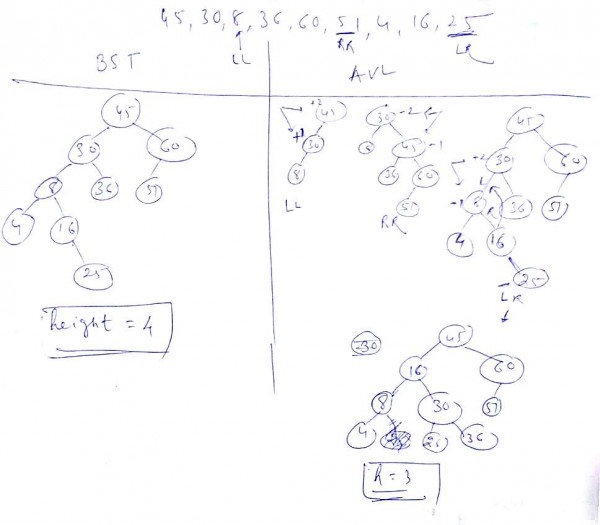 45, 30, 8, 36, 60, 51, 4, 16, 25
LL RR LR
BST AVL
45
30 60
8 36 51
4 16
25
height = 4
+2 45
+1 30
8
LL
30 -2
8 45 -1
36 60
51
RR
45
+2 30 60
-1 8 36 51
L R
4 16
25
LR
30
45
16 60
8 30 51
4 25 36
h = 3